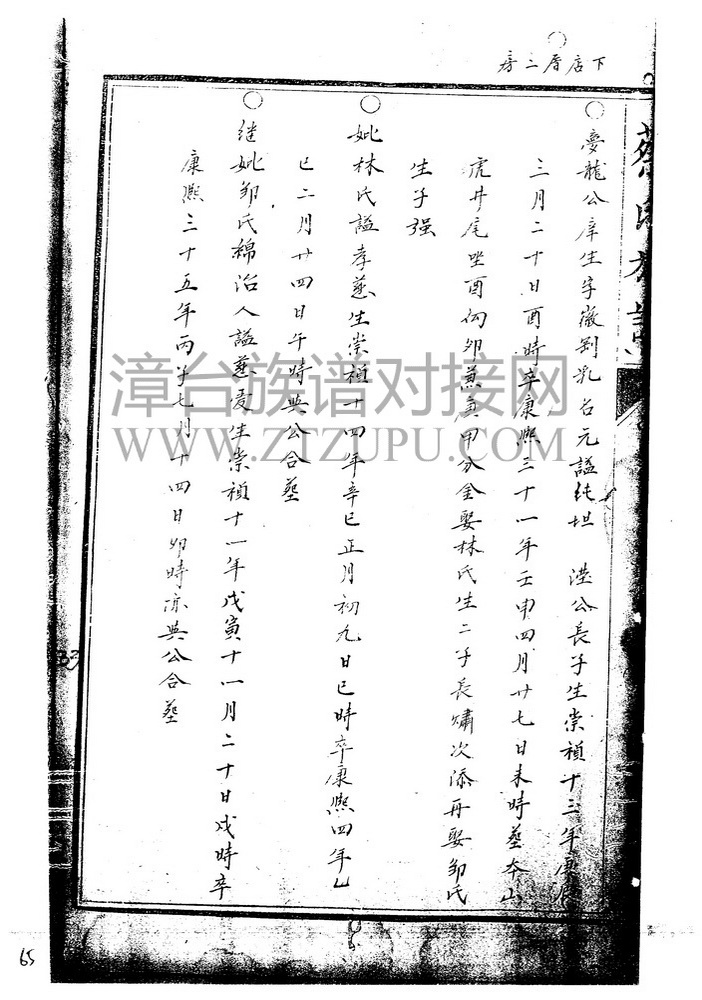 下店厝三房
夢龍公庠生字徽劉乳名元謚純坦 港公長子生崇禎十三年庚辰
三月二十日酉時卒康熙三十一年壬申四月廿七日未時塟本山
虎井尾坐酉向卯兼庚甲分金娶林氏生二子長㸅次添再娶邹氏
生子强
妣林氏謚孝慈生崇禎十四年辛巳正月初九日巳時卒康熙四年乙
巳二月廿四日午時與公合塟
继妣邹氏綿治人謚慈爱生崇禎十一年戊寅十一月二十日戌時卒
康熙三十五年丙子七月十四日卯時亦與公合塟
漳台族谱对接网
WWW.ZTZUPU.COM
33
65